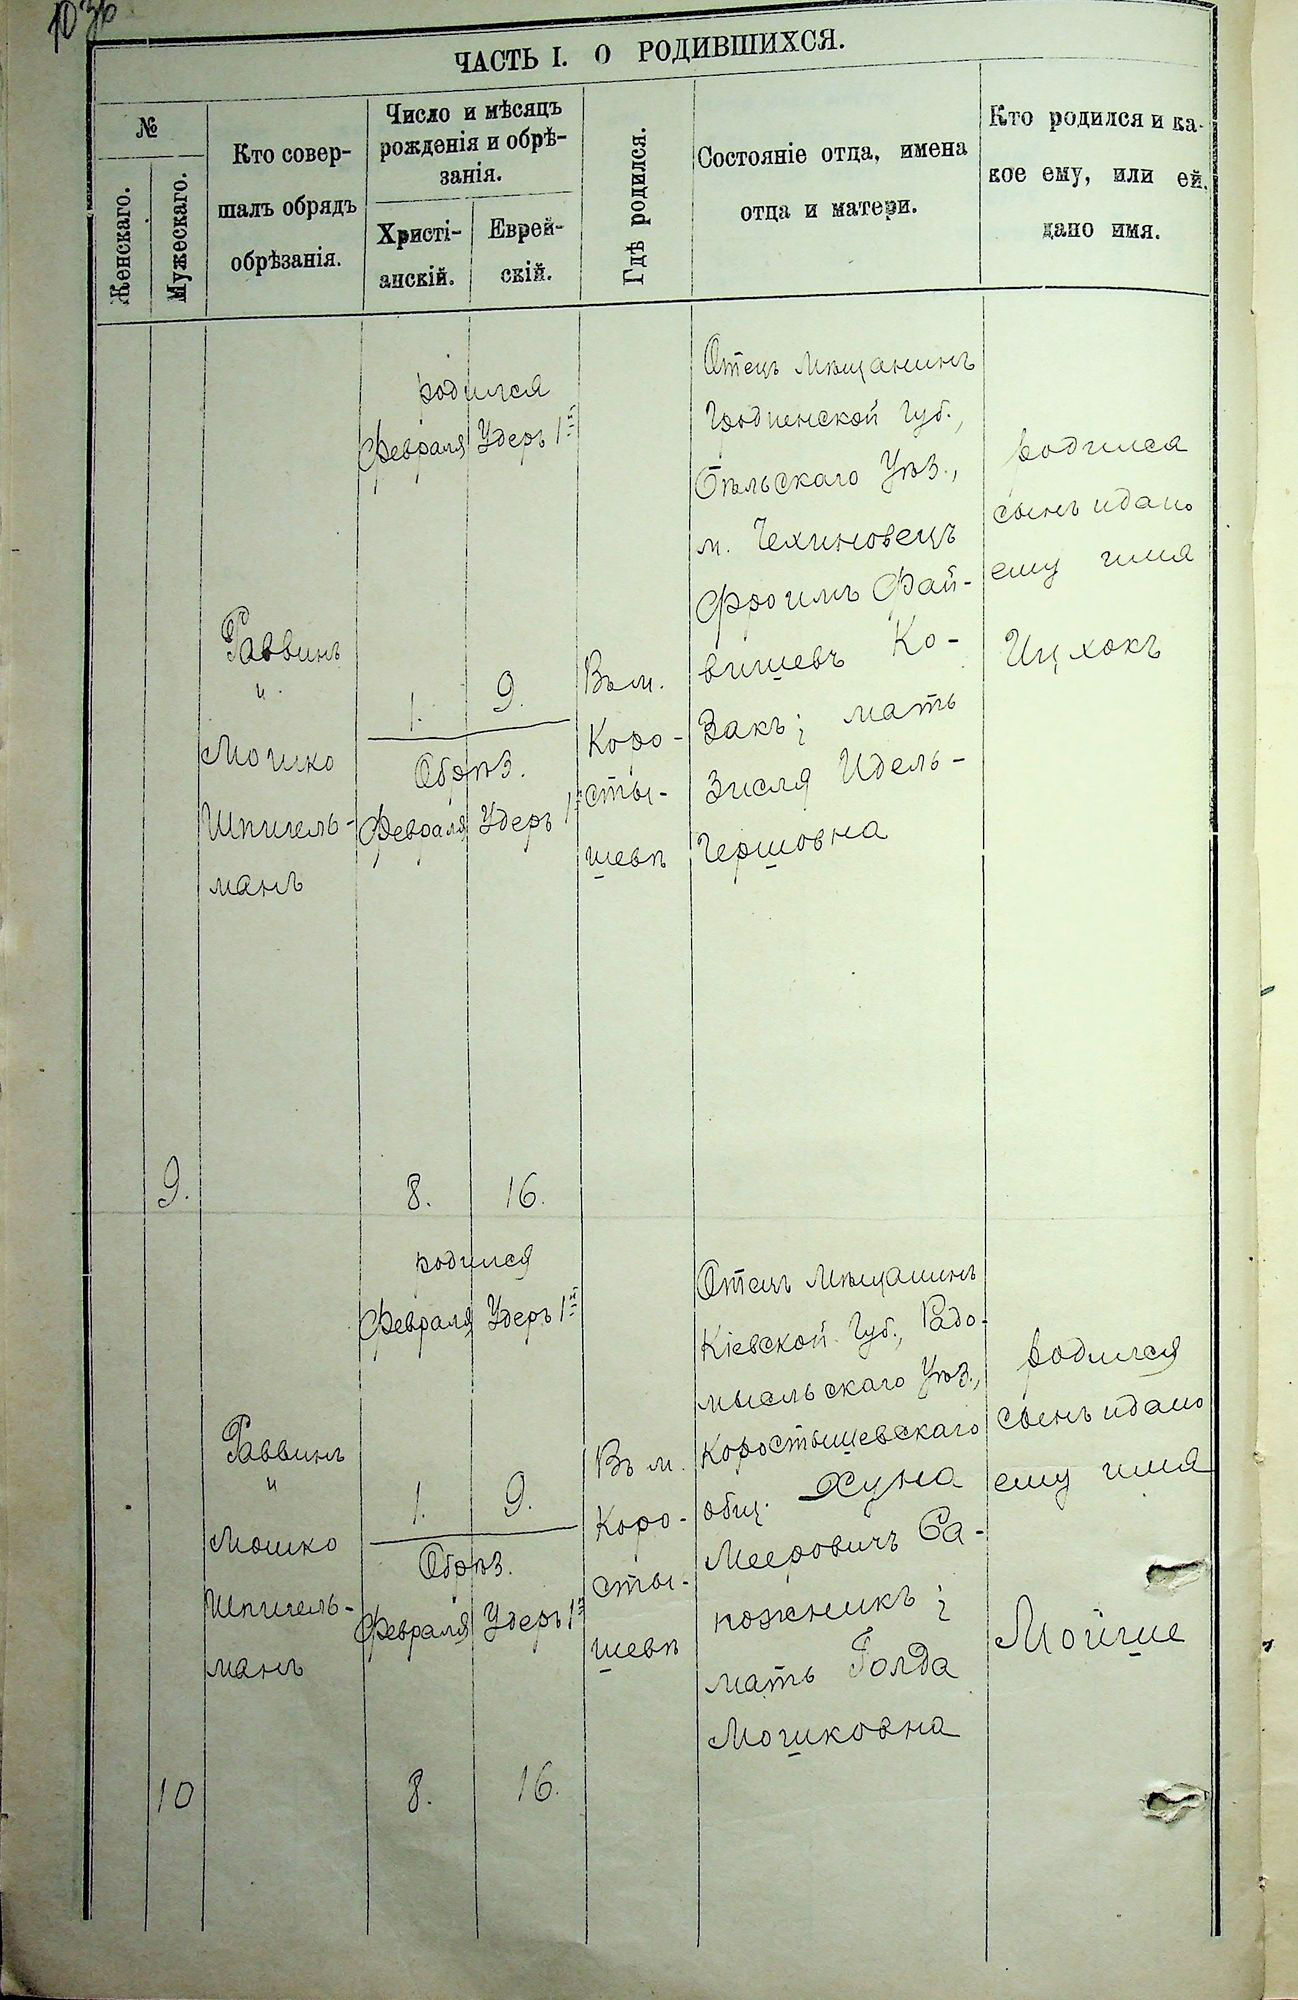 ЧАСТЬ I. О РОДИВШИХСЯ.
№
Женскаго.
Мужескаго.
Кто совер-
шалъ обрядъ
обрѣзанія.
Число и мѣсяцъ
рожденія и обрѣ-
занія.
Христі-
анскій.
Еврей-
скій.
Гдѣ родился.
Состояніе отца, имена
отца и матери.
Кто родился и ка-
кое ему, или ей,
дано имя.
9.
Раввинъ
и
Мошко
Шпигель-
манъ
родился
Февраля Удеръ 1й
1. 9.
Обрѣз.
Февраля Удеръ 1й
8. 16.
Въ м.
Коро-
сты-
шевѣ
Отецъ Мѣщанинъ
Гродненской Губ.,
Бѣльскаго Уѣз.,
м. Чехиновецъ
Фроимъ Фай-
вишевъ Ко-
закъ; мать
Зисля Идель-
Гершовна
родился
сынъ и дано
ему имя
Ицхокъ
10
Раввинъ
и
Мошко
Шпигель-
манъ
родился
Февраля Удеръ 1й
1. 9.
Обрѣз.
Февраля Удеръ 1й
8. 16.
Въ м.
Коро-
сты-
шевѣ
Отецъ Мѣщанинъ
Кіевской Губ., Радо-
мысльскаго Уѣз.,
Коростышевскаго
общ. Хуна
Мееровичъ Са-
пожникъ;
мать Голда
Мошковна
родился
сынъ и дано
ему имя
Мойше